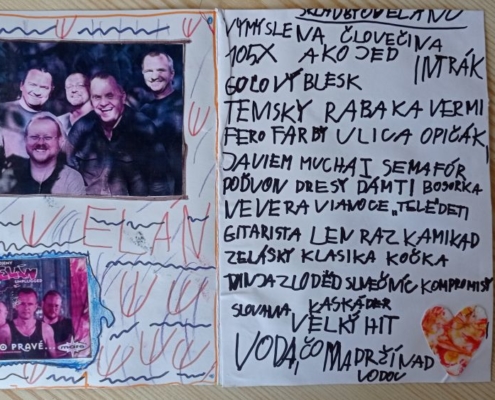 ELÁN
UNPLUGGED
O PRAVÉ...
VYMYSLENA ČLOVEČINA
105X AKO JED
INTRÁK
GOĽOVÝ BLESK
TEMSKY RABAKA VERMI
FERO FARBY ULICA OPIČÁK
DAVIEM MUCHA I SEMAFÓR
POĎVON DRESY DÁMTI BOSORKA
NEVERA VIANOCE „TELE"DETI
GITARISTA LEN RAZ KAMIKAD
ZELÁSKY KLASIKA KOČKA
ZLODED SLNEČNIC KOMPROMIST
SLOVANA KASKADER
VELKÝ HIT
VODA, ČO MA DRŽÍ NAD
VODOU